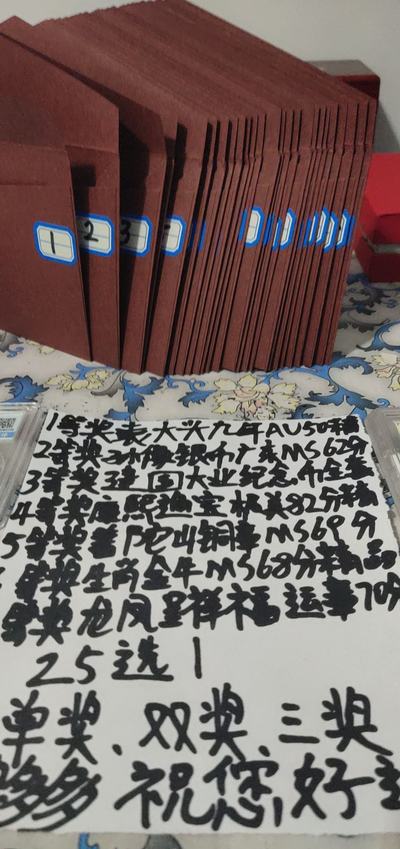 1
2
3
1等奖袁大头九年AU50精
2等奖孙像银币广东MS62分
3等奖建国大业纪念币全套
4等奖康熙通宝极美82分精
5等奖普陀山铜章MS69分
等奖生肖金牛MS68分精品
等奖龙凤呈祥福运章70分
25选1
单奖、双奖、三奖
多多 祝您好